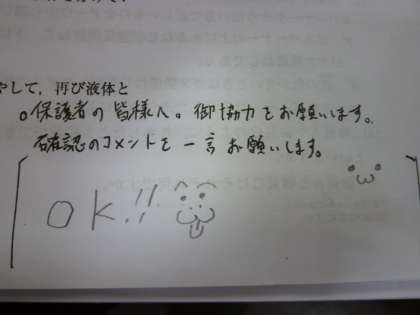 やして，再び液体と
○保護者の皆様へ。御協力をお願いします。
確認のコメントを一言お願いします。
ok!!